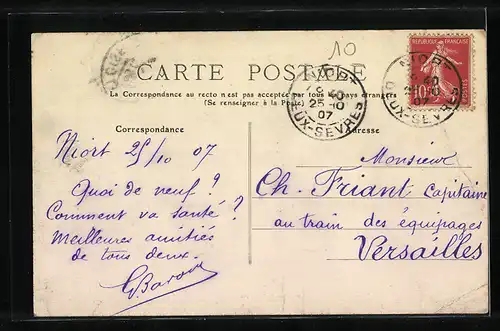 10
CARTE POSTALE
La Correspondance au recto n'est pas acceptée par tous les pays étrangers
(Se renseigner à la Poste)
REPUBLIQUE FRANÇAISE
10
NIORT
9 40
25-10
07
DEUX-SEVRES
NIORT
9 40
25-10
07
DEUX-SEVRES
Correspondance
Adresse
Niort 25/10 07
Quoi de neuf ?
Comment va santé ?
Meilleures amitiés
de tous deux.
Monsieur
Ch. Friant Capitaine
au train des équipages
Versailles